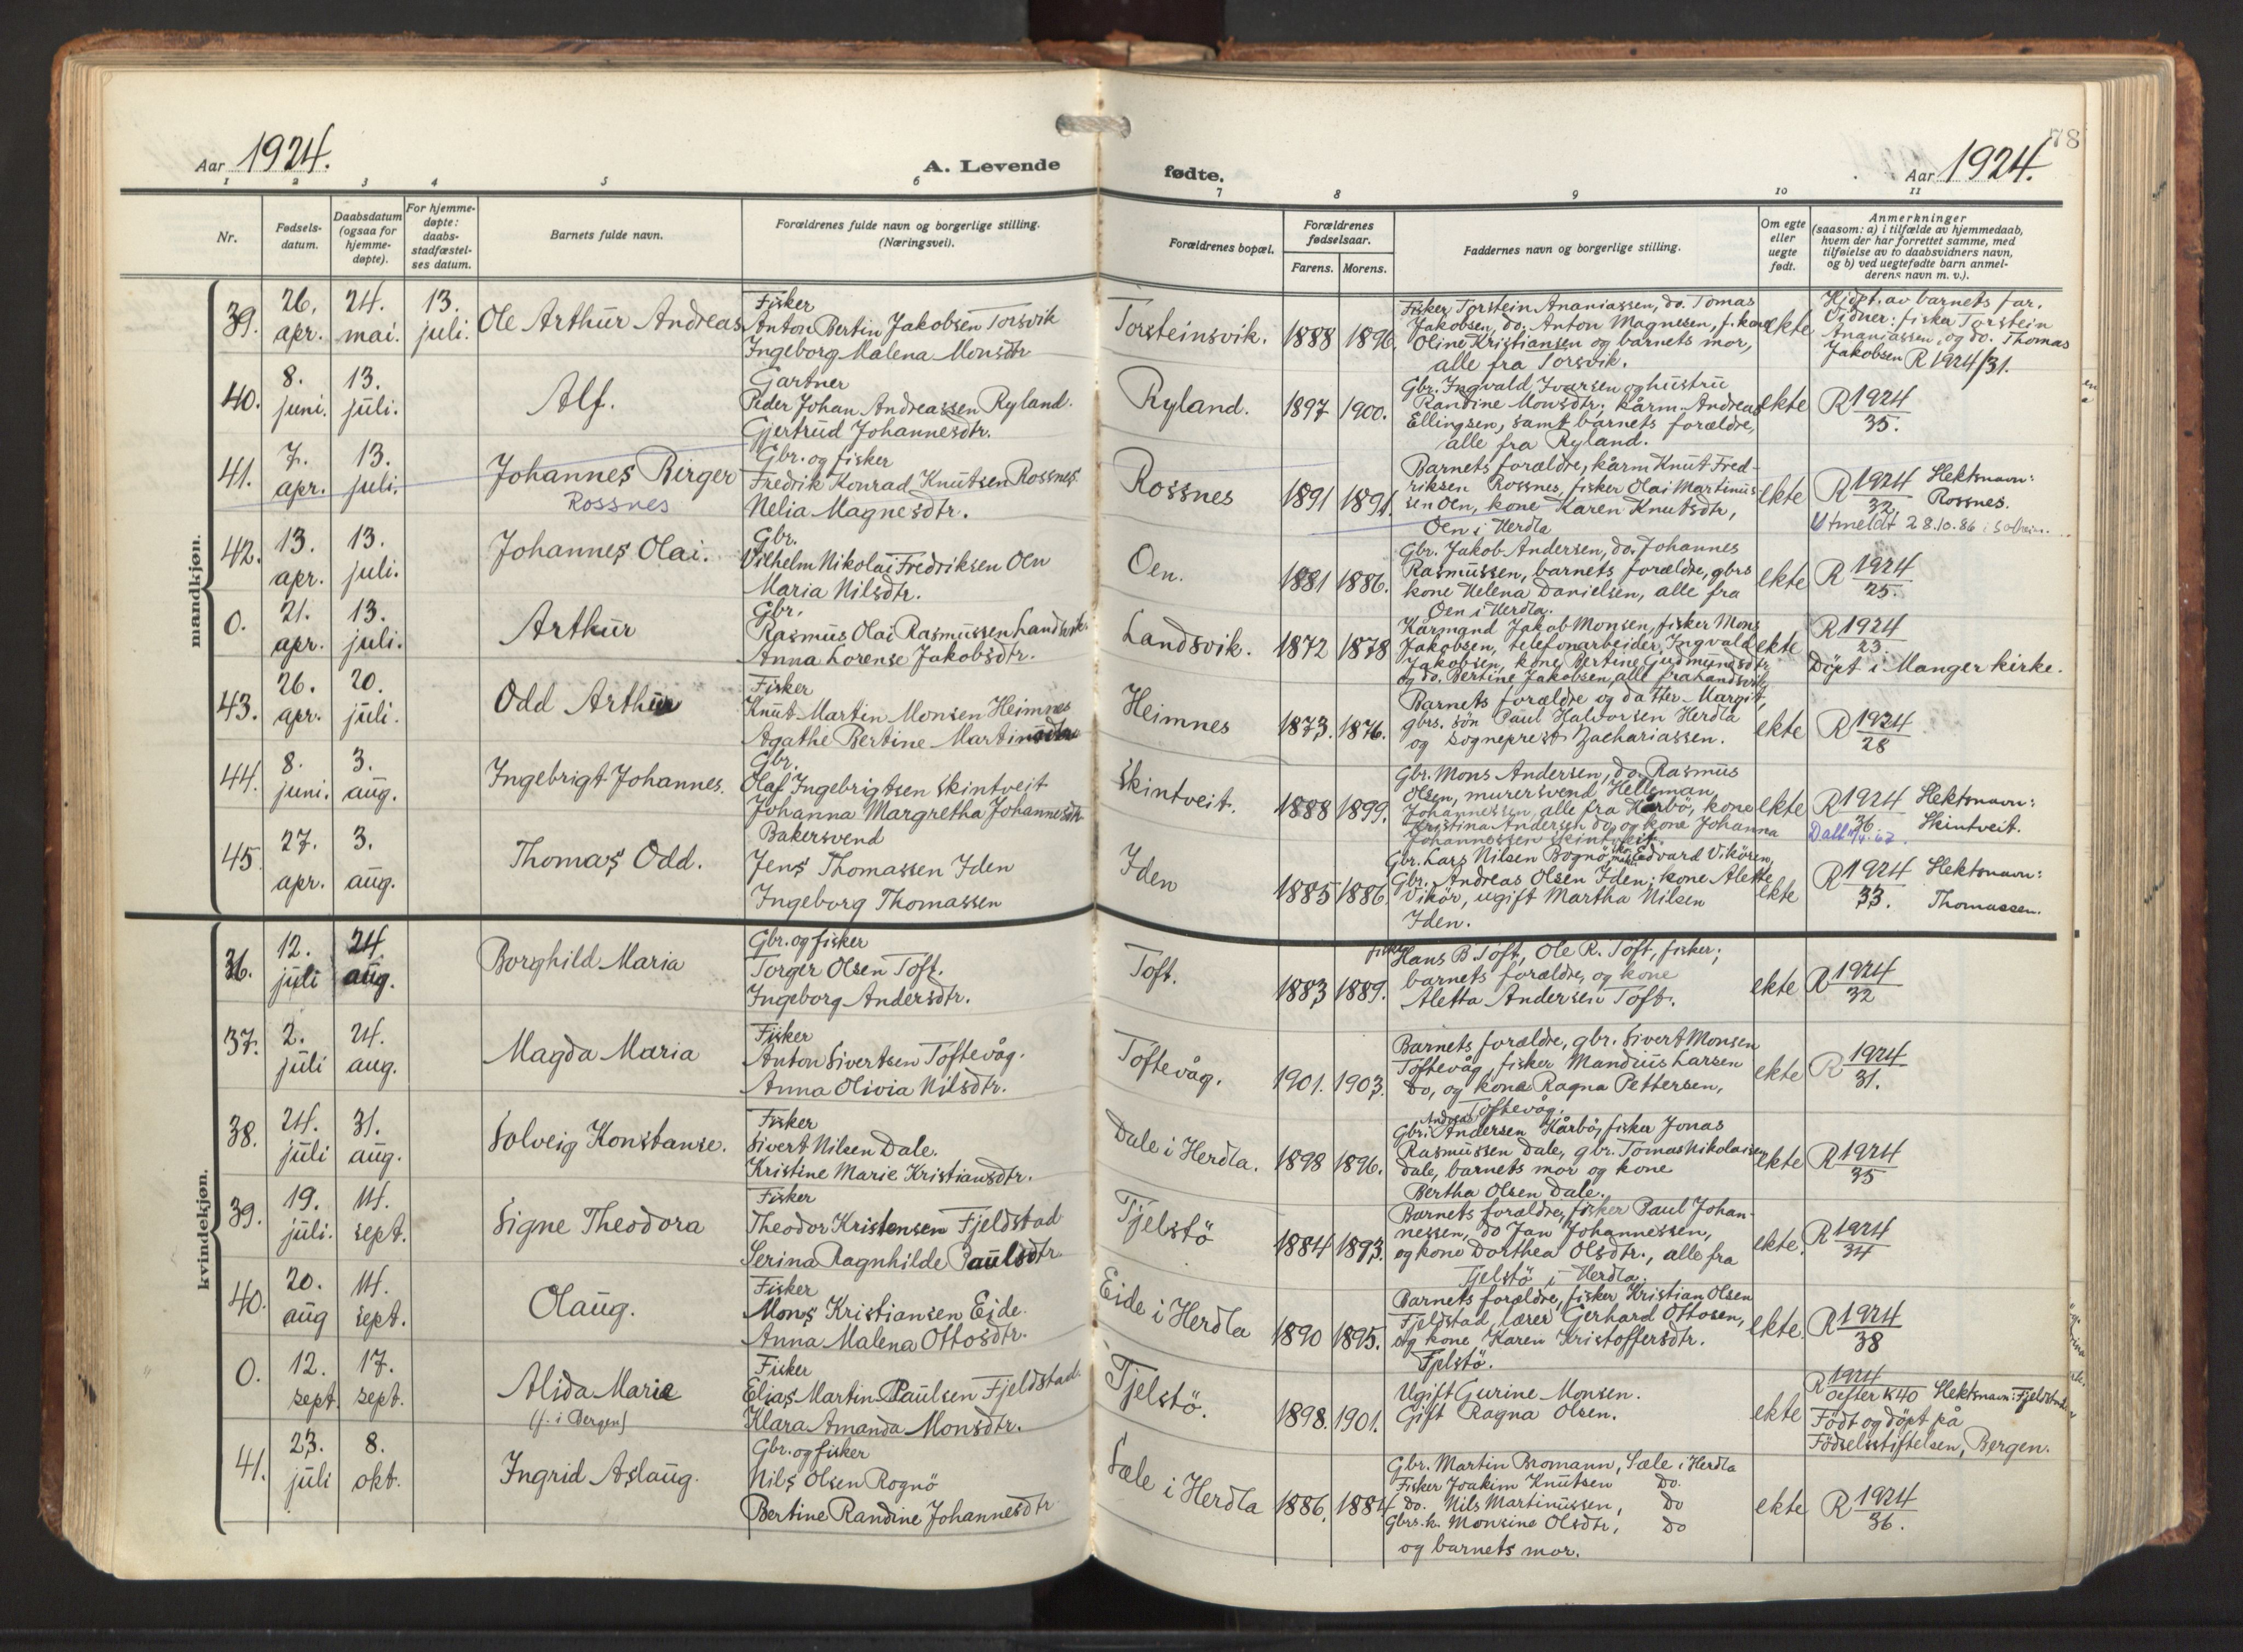 78
Aar 1924.
A. Levende
fødte.
Aar 1924.
1 2 3 4 5 6 7 8 9 10 11
Nr.
Fødsels-
datum.
Daabsdatum
(ogsaa for
hjemme-
døpte).
For hjemme-
døpte:
daabs-
stadfæstel-
ses datum.
Barnets fulde navn.
Forældrenes fulde navn og borgerlige stilling.
(Næringsvei).
Forældrenes bopæl.
Forældrenes
fødselsaar.
Farens. Morens.
Faddernes navn og borgerlige stilling.
Om egte
eller
uegte
født.
Anmerkninger
(saasom: a) i tilfælde av hjemmedaab,
hvem der har forrettet samme, med
tilføielse av to daabsvidners navn,
og b) ved uegtefødte barn anmel-
derens navn m. v.).
mandkjøn.
39.
26.
apr.
24.
mai.
13.
juli.
Ole Arthur Andreas
Fisker
Anton Bertin Jakobsen Torsvik
Ingeborg Malena Monsdtr
Torsteinsvik.
1888
1896.
Fisker Torstein Ananiassen, do. Tomas
Jakobsen, do. Anton Magnesen, f. kone
Oline Kristiansen og barnets mor,
alle fra Torsvik.
ekte
Hjdpt. av barnets far.
Vidner: fisker Torstein
Ananiassen, og do. Thomas
Jakobsen R 1924/31.
40.
8.
juni.
13.
juli.
Alf.
Gartner
Peder Johan Andreassen Ryland.
Gjertrud Johannesdtr.
Ryland.
1897
1900.
Gbr. Ingvald Ivarsen og hustru
Randine Monsdtr., kårm. Andreas
Ellingsen, samt barnets forældre,
alle fra Ryland.
ekte
R 1924
35.
41.
7.
apr.
13.
juli.
Johannes Birger
Rossnes
Gbr. og fisker
Fredrik Konrad Knutsen Rossnes.
Nelia Magnesdtr.
Rossnes
1891
1891.
Barnets forældre, kårm Knut Fred-
riksen Rossnes, fisker Olai Martinus-
sen Oen, kone Karen Knutsdtr,
Oen i Herdla
ekte
R 1924
32.
Slektsnavn:
Rossnes.
Utmeldt 28.10.86
42.
13.
apr.
13.
juli.
Johannes Olai.
Gbr.
Vilhelm Nikolai Fredriksen Oen
Maria Nilsdtr.
Oen.
1881
1886.
Gbr. Jakob Andersen, do. Johannes
Rasmussen, barnets forældre, gbrs
kone Helena Danielsen, alle fra
Oen i Herdla.
ekte
R 1924
25.
0.
21.
apr.
13.
juli.
Arthur
Gbr.
Rasmus Olai Rasmussen Landsvik.
Anna Lorense Jakobsdtr.
Landsvik.
1872
1878
Kårmand Jakob Monsen, fisker Mons
Jakobsen, telefonarbeider Ingvald
Jakobsen, kone Bertine Gudmundsdtr
og do. Bertine Jakobsen, alle fra Landsvik
ekte
R 1924
23.
Döpt i Manger kirke.
43.
26.
apr.
20.
juli.
Odd Arthur
Fisker
Knut Martin Monsen Heimnes
Agathe Bertine Martinsdtr
Heimnes
1873.
1876.
Barnets forældre og datter Margit,
gbrs. sön Paul Halvorsen Herdla
og sogneprest Zachariassen.
ekte
R 1924
28
44.
8.
juni.
3.
aug.
Ingebrigt Johannes.
Gbr.
Olaf Ingebrigtsen Skintveit
Johanna Margretha Johannesdtr
Skintveit.
1888
1899.
Gbr. Mons Andersen, do. Rasmus
Olsen, murersvend Hellsman
Johannessen, alle fra Hårbö, kone
Kristina Andersen do, og kone Johanna
Johannessen Skintveit.
ekte
R 1924
36
Slektsnavn:
Skintveit.
45
27.
apr.
3.
aug.
Thomas Odd.
Bakersvend
Jens Thomassen Iden
Ingeborg Thomassen
Iden
1885
1886.
Gbr. Lars Nilsen Bognö, Edvard Vikören,
Gbr. Andreas Olsen Iden; kone Alette
Vikör, ugift Martha Nilsen
Iden.
ekte
R 1924
33.
Slektsnavn:
Thomassen.
kvindekjøn.
36.
12.
juli
24.
aug.
Borghild Maria
Gbr. og fisker
Torger Olsen Toft.
Ingeborg Andersdtr.
Toft.
1883
1889.
fisker Hans B Toft, Ole R. Toft, fisker;
barnets forældre, og kone
Aletta Andersen Toft.
ekte
R 1924
32
37.
2.
juli
24.
aug.
Magda Maria
Fisker
Anton Sivertsen Toftevåg.
Anna Olivia Nilsdtr.
Toftevåg.
1901.
1903.
Barnets forældre, gbr. Sivert Monsen
Toftevåg, fisker Mandrus Larsen
Do, og kone Ragna Pettersen,
Toftevåg.
ekte
R 1924
31.
38.
24.
juli
31.
aug.
Solveig Konstanse.
Fisker
Sivert Nilsen Dale.
Kristine Marie Kristiansdtr.
Dale i Herdla.
1898
1896.
Andreas
Gbr. Andersen Hårbö, fisker Jonas
Rasmussen Dale, gbr. Tomas Nikolaisen
Dale, barnets mor og kone
Bertha Olsen Dale.
ekte
R 1924
35
39.
19.
juli.
14.
sept.
Signe Theodora
Fisker
Theodor Kristensen Fjeldstad
Serina Ragnhilde Paulsdtr.
Tjelstö
1884
1893.
Barnets forældre, fisker Paul Johan-
nessen, do Jan Johannessen,
og kone Dorthea Olsdtr., alle fra
Tjelstö i Herdla.
ekte.
R 1924
34
40.
20.
aug
14.
sept.
Olaug.
Fisker
Mons Kristiansen Eide.
Anna Malena Ottosdtr.
Eide i Herdla
1890
1895.
Barnets forældre, fisker Kristian Olsen
Fjeldstad, lærer Gerhard Ottosen,
og kone Karen Kristoffersdtr.
Tjelstö.
ekte.
R 1924
38
0.
12.
sept.
17.
sept.
Alida Marie
(f. i Bergen)
Fisker
Elias Martin Paulsen Fjeldstad.
Klara Amanda Monsdtr.
Tjelstö.
1898.
1901.
Ugift Gurine Monsen.
Gift Ragna Olsen.
ekte
R 1924
oefter k 40 Slektsnavn: Fjeldstad
Födt og döpt på
Födselsstiftelsen, Bergen.
41.
23.
juli
8.
okt.
Ingrid Aslaug.
Gbr. og fisker
Nils Olsen Rognö
Bertine Randine Johannesdtr
Sæle i Herdla
1886.
1884
Gbr. Martin Bromann, Sæle i Herdla
Fisker Joakim Knutsen Do.
Do. Nils Martinussen, Do
Gbrs. k. Monsine Olsdtr, Do
og barnets mor.
ekte
R 1924
36.